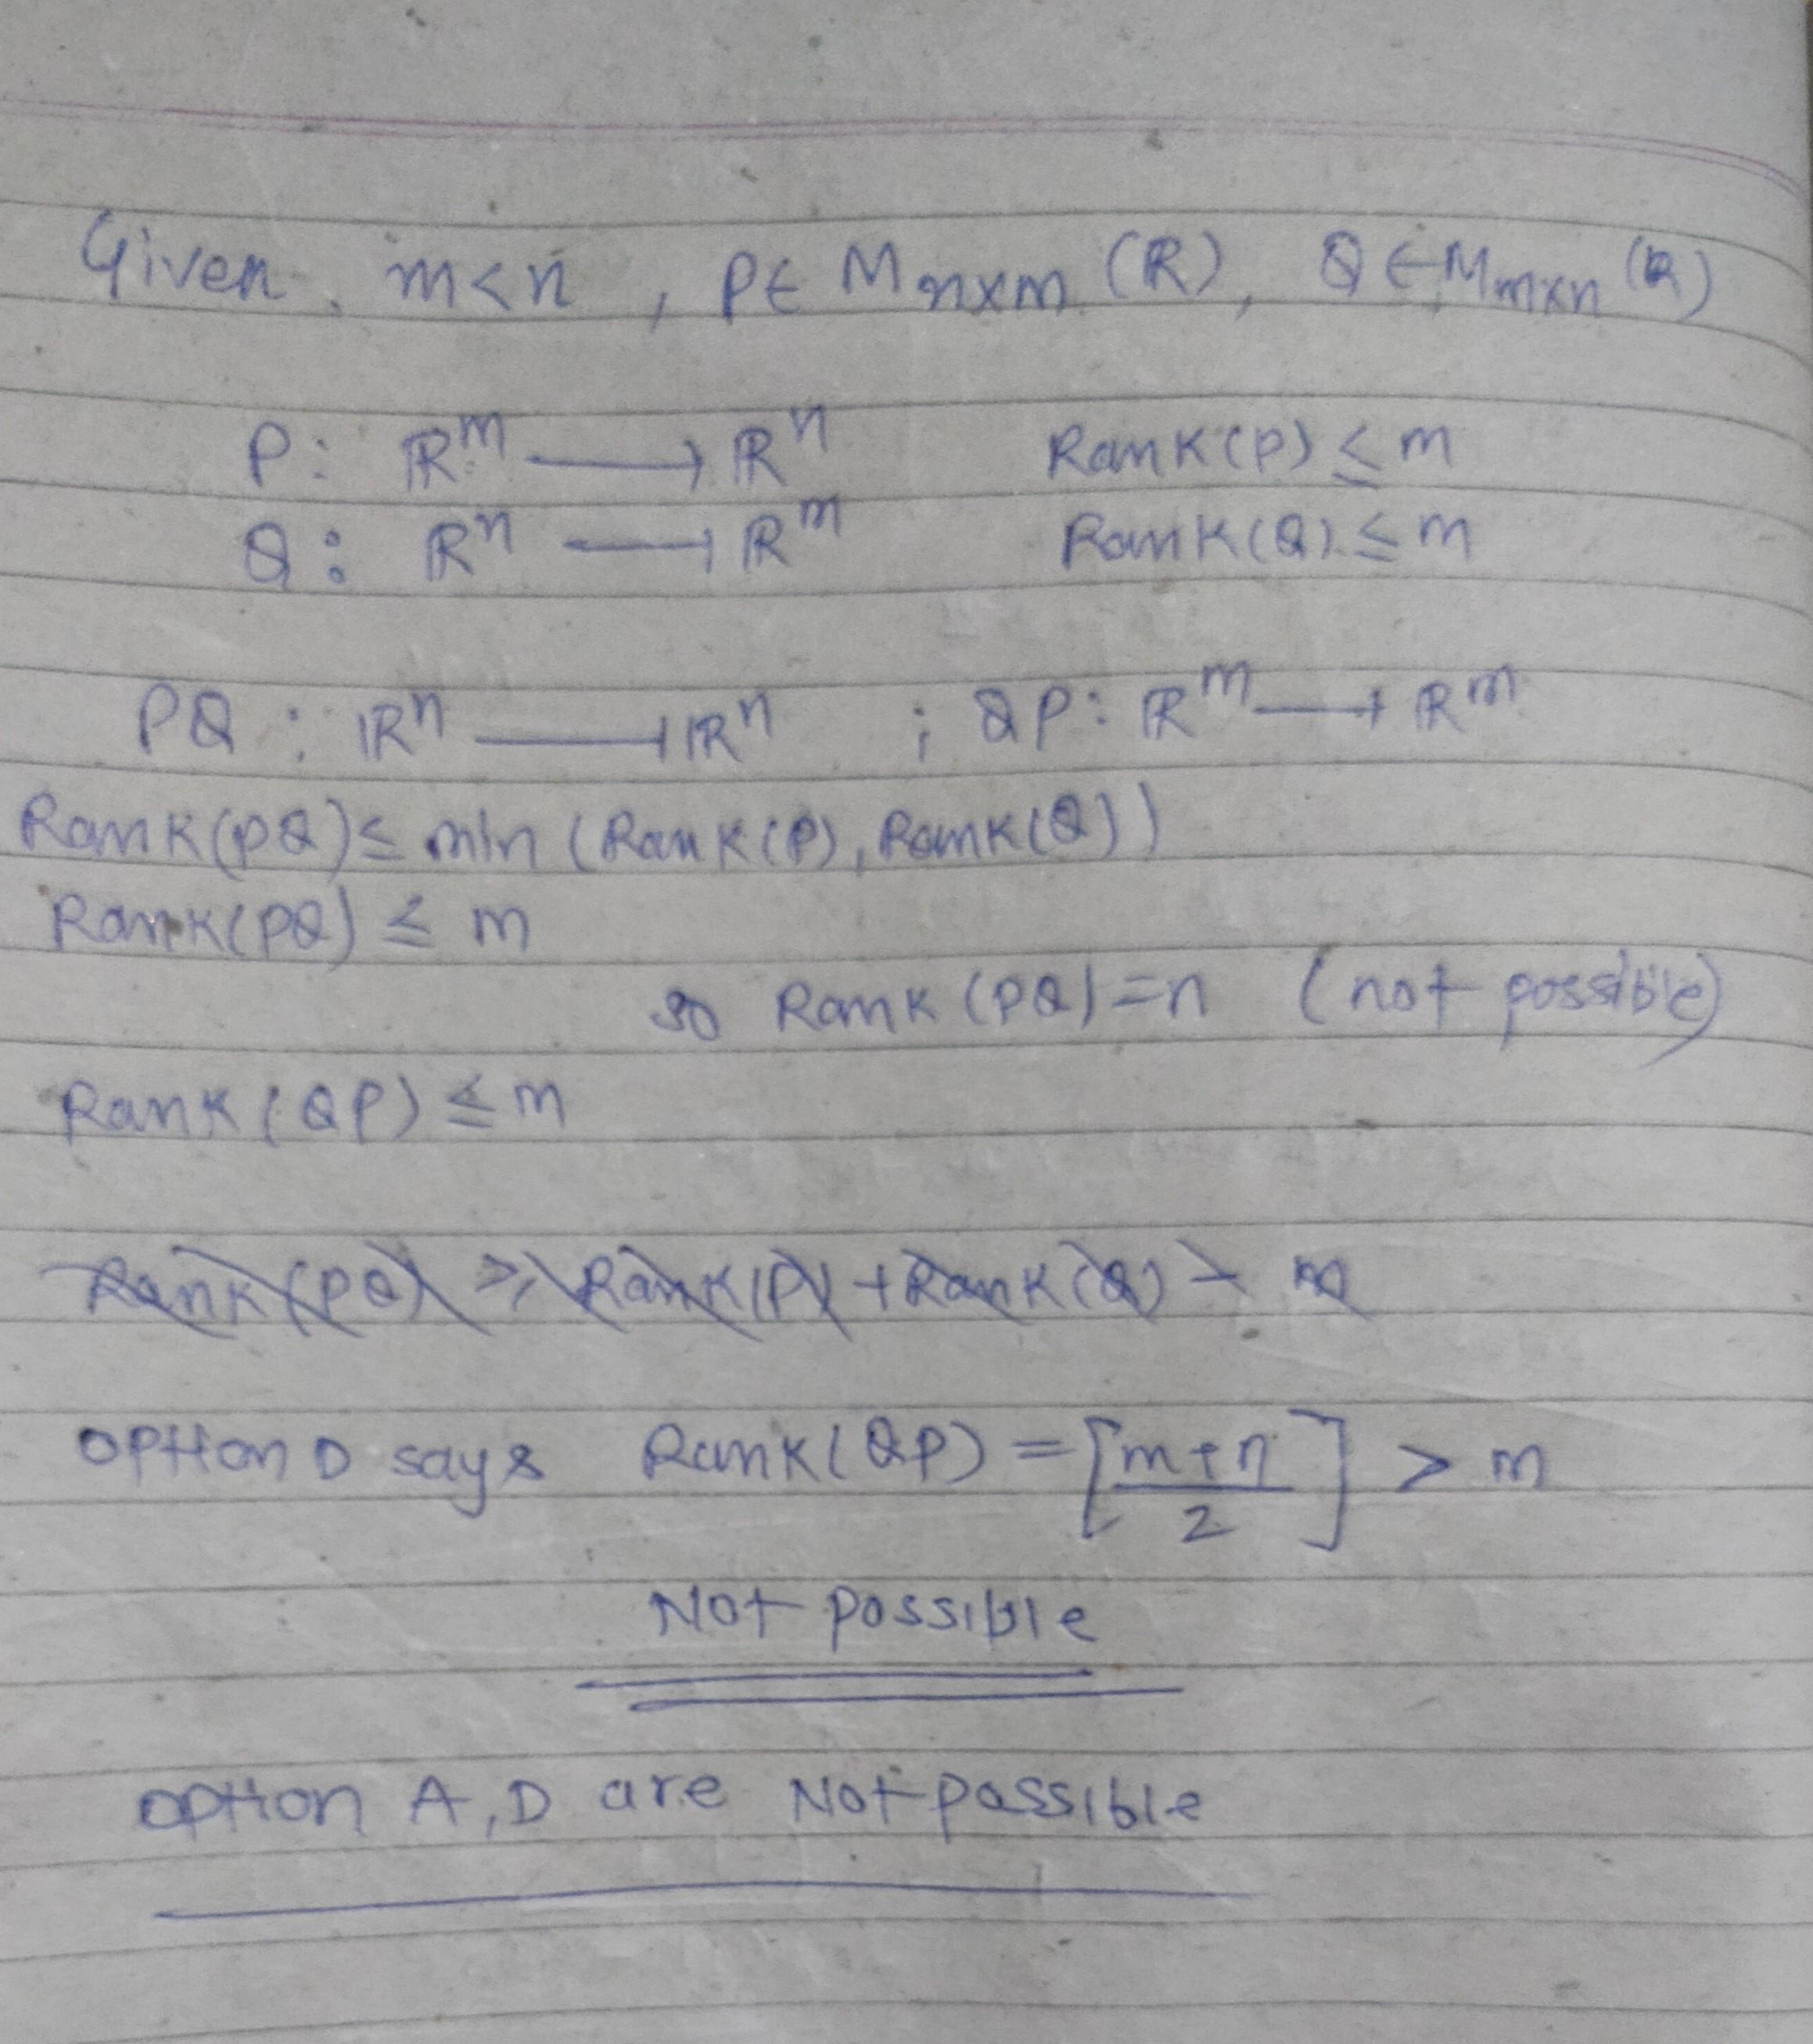 Given. m<n , P∈ Mnxm (R), Q∈Mmxn (R)
P: ℝ^m ⟶ ℝ^n Rank(P) ≤ m
Q: ℝ^n ⟶ ℝ^m Rank(Q) ≤ m
PQ : ℝ^n ⟶ ℝ^n ; QP: ℝ^m ⟶ ℝ^m
Rank(PQ) ≤ min (Rank(P), Rank(Q))
Rank(PQ) ≤ m
so Rank (PQ) = n (not possible)
Rank (QP) ≤ m
Rank (PQ) ≥ Rank(P) + Rank(Q) - m
option D says Rank(QP) = [m+n/2] > m
Not possible
option A,D are Not possible